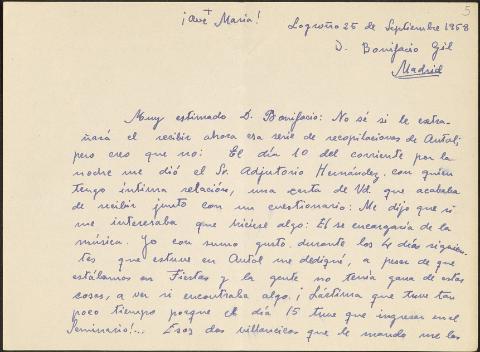 5
¡Ave + María!
Logroño 25 de Septiembre 1958
D. Bonifacio Gil
Madrid
Muy estimado D. Bonifacio: No sé si le extra-
ñará el recibir ahora esa serie de recopilaciones de Autol;
pero creo que no: El día 10 del corriente por la
noche me dió el Sr. Adjutorio Hernández con quien
tengo íntima relación, una carta de Vd. que acababa
de recibir junto con un cuestionario: Me dijo que si
me interesaba que hiciese algo: El se encargaría de la
música. Yo con sumo gusto durante los 4 días siguien-
tes que estuve en Autol me dediqué, a pesar de que
estábamos en Fiestas y la gente no tenía gana de estas
cosas, a ver si encontraba algo. ¡Lástima que tuve tan
poco tiempo porque el día 15 tuve que ingresar en el
Seminario!... Esos dos villancicos que le mando me los